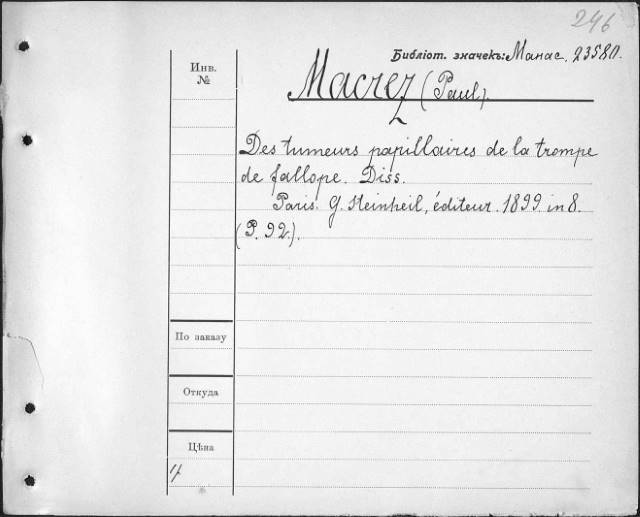 246
Библіот. значекъ: Манас. 23580.
Инв. №
Macrez (Paul).
Des tumeurs papillaires de la trompe
de fallope. Diss.
Paris. G. Steinheil, éditeur. 1899. in 8.
(P. 92.).
По заказу
Откуда
Цѣна
4